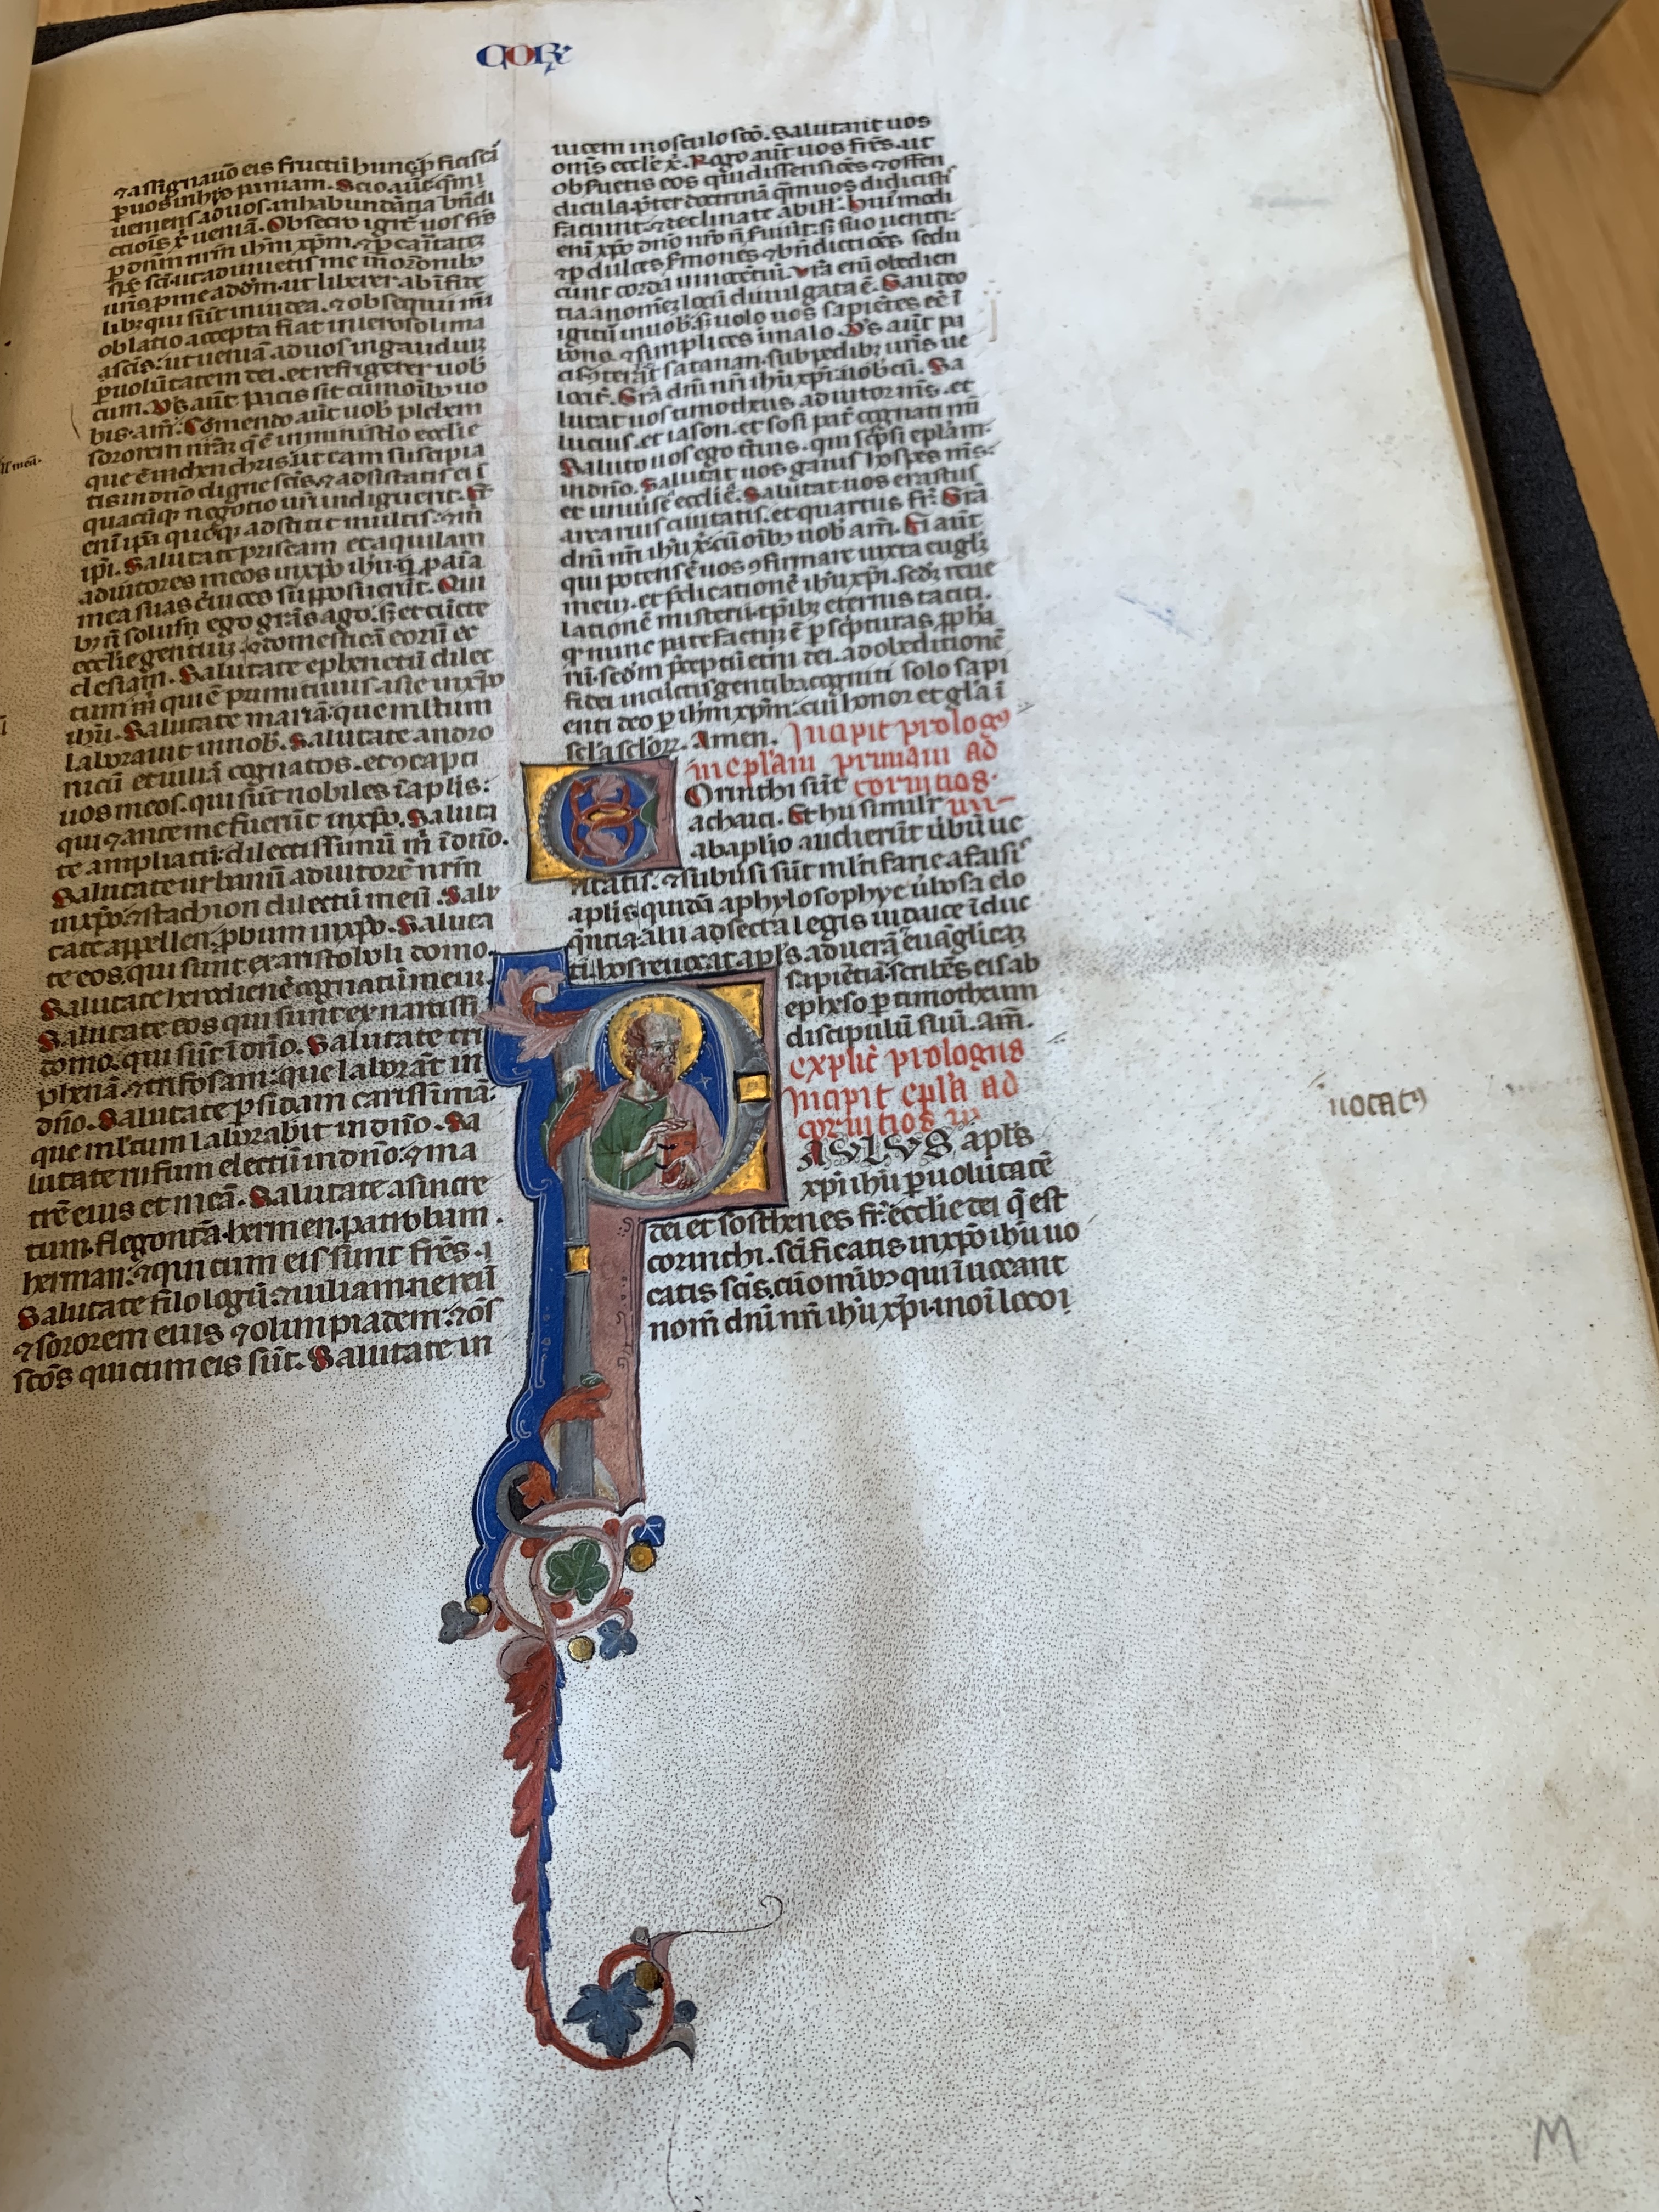 COR
⁊ assignauo eis fructū hunc ꝓficiscā
ꝑ uos in hyspaniam. Scio aut̄ qm̄
ueniens ad uos. in habundātia bn̄di
ctiōis x̄ ueniā. Obsecro igit̄ uos fr̄s
ꝑ dn̄m nrm̄ ihm̄ xpm̄. ⁊ ꝑ caritatē
sp̄s sc̄i. ut adiuuetis me in or̄onibꝰ
ur̄is ꝓ me ad dm̄. ut liberer ab īfide
libꝫ qui sūt in iudea. ⁊ obsequii mi
oblatio accepta fiat in ierosolima
sc̄is. ut ueniā ad uos in gaudiuꝫ
ꝑ uolūtatem dei. et refrigerer uob
cum. Ds̄ aut̄ pacis sit cū om̄ibꝰ uo
bis. am̄. Comendo aut̄ uob phebem
sororem nr̄aꝫ q̄ ē in ministio ecclie
que ē in chenchris. ut eam suscipia
tis in dn̄o digne sc̄is. ⁊ adsistatis ei ī
quacūqꝫ negotio ur̄i indiguerit. Et
eni ip̄a quoqꝫ adstitit multis. ⁊ m̄
ipi. Salutate priscam et aquilam
adiutores meos in xp̄o ihū. q̄ ꝓ aīa
mea suas ceruices supposuerūt. Qui
bꝫ n̄ solus ego gr̄as ago. sꝫ et cūcte
ecclie gentiuꝫ. ⁊ domesticā eorū ec
clesiam. Salutate ephenetū dilec
tum m̄ qui ē primitiuus asie in xp̄o
ihū. Salutate mariā. que mltum
laborauit in uob. Salutate andro
nicū et iuliā cognatos. et ꝯcapti
uos meos. qui sūt nobiles ī aplis.
qui ⁊ ante me fuerūt in xp̄o. Saluta
te ampliatū. dilectissimū m̄ ī dn̄o.
Salutate urbanū adiutorē nrm̄
in xp̄o. ⁊ stachion dilectū meū. Salu
tate appellen. ꝓbum in xp̄o. Saluta
te eos. qui sunt ex aristoboli domo.
Salutate herodienē cognatū meuꝫ.
Salutate eos qui sunt ex narcissi
domo. qui sūt ī dn̄o. Salutate tri
phenā. ⁊ trifosam. que laborāt in
dn̄o. Salutate ꝑsidam carissimā.
que mltum laborabit in dn̄o. Sa
lutate rufum electū in dn̄o. ⁊ ma
trē eius et meā. Salutate asincre
tum. flegontā. hermen. patrobam.
herman. ⁊ qui cum eis sunt fr̄es.
Salutate filologū. ⁊ iuliam. nereū
⁊ sororem eius ⁊ olimpiadem. ⁊ ōs
sc̄os qui cum eis sūt. Salutate in
uicem in osculo sc̄o. Salutant uos
om̄s eccle x̄. Rogo aut̄ uos fr̄es. ut
obseruetis eos qui dissensiōes ⁊ offen
dicula p̄ter doctrinā q̄m uos didicistis
faciunt. ⁊ declinate ab ill'. Hui'modi
eni xp̄o dn̄o nr̄o n̄ seruiūt. sꝫ suo uentri.
⁊ ꝑ dulces sermones ⁊ bn̄dictiōes sedu
cunt corda innocētiū. Vr̄a eni obedien
tia in omēꝫ locū diuulgata ē. Gaudeo
igitur in uob. sꝫ uolo uos sapiētes eē ī
bono. ⁊ simplices ī malo. Ds̄ aut̄ pa
cis ꝯterat satanan. sub pedibꝫ ur̄is ue
locit̄. Gr̄a dni nri ihū xp̄i uobcū. Sa
lutat uos timotheus adiutor m̄s. et
lucius. et iason. et sosipat̄ cognati mī
Saluto uos ego t̄tius. qui sc̄psi eplam
in dn̄o. Salutat uos gaius hospes m̄s.
et uniuīse ecclie. Salutat uos erastus
arcarius ciuitatis. et quartus fr̄. Gr̄a
dni nri ihū x̄ cū om̄ibꝰ uob am̄. Ei aut̄
qui potens ē uos ꝯfirmare iuxta eugl̄ꝫ
meuꝫ. et p̄dicationē ihū xp̄i. sedꝫ reue
lationē misterii. tp̄ibꝫ eternis taciti.
q̄ nunc patefactuꝫ ē ꝑ sc̄pturas ꝓpha
ꝝ. scdm̄ p̄ceptū etni dei. ad obeditionē
fidei in cūctis gentibꝫ. cogniti solo sapi
enti deo ꝑ ihm̄ xpm̄. cui honor et gl'a ī
sc̄la sc̄loꝝ. Amen. Incipit prologꝰ
in eplam primam ad
corintios.
Orinthi sūt
achaici. Et hii similr̄
ab aplio audierūt ubū ue
ritatis. ⁊ subuersi sūt ml'tifarie a falsis
aplis. quidā a phylosophye ubosa elo
q̄ntia. alii ad secta legis iudaice īduc
ti. hos reuocat apl's ad uerā euāglicaꝫ
sapiētiā. scribēs eis ab
epheso ꝑ timotheum
discipulū suū. am̄.
explic̄ prologus
Incipit epl'a ad
corintios. p̄
AVLVS apl's
xp̄i ihū ꝑ uolūtatē
dei et sosthenes fr̄. ecclie dei q̄ est
corinthi. sc̄ificatis in xp̄o ihū uo
catis sc̄is. cū omībꝰ qui īuocant
nom̄ dn̄i nri ihū xp̄i. in oī loco ī
uocatꝰ
M